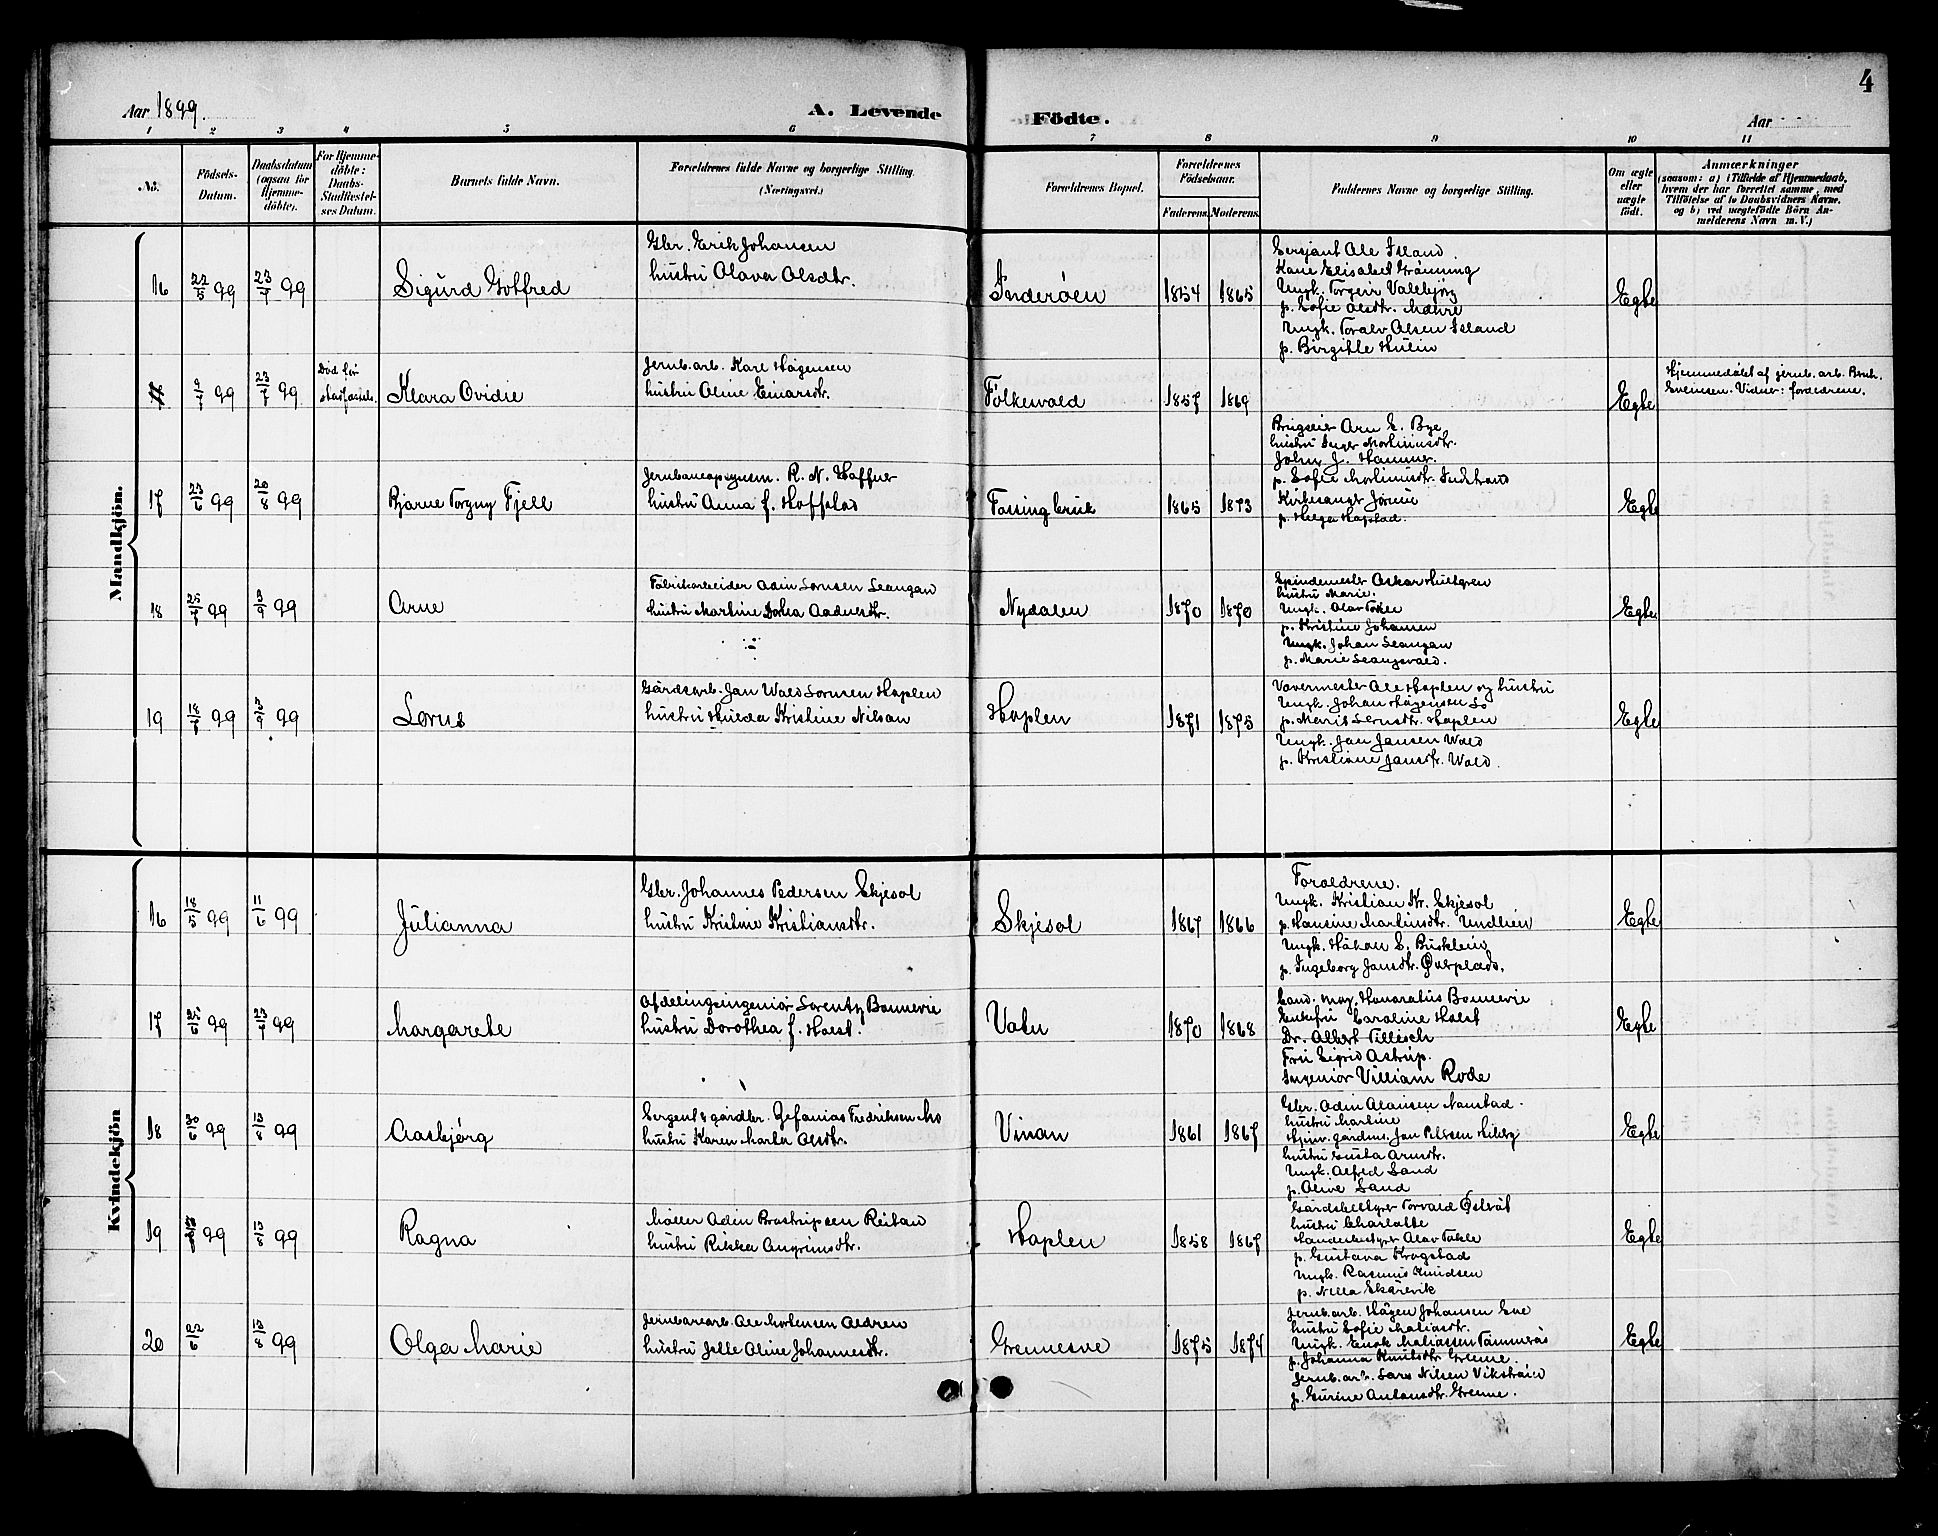 4
Aar 1899.
A. Levende Födte.
Aar
1 2 3 4 5 6 7 8 9 10 11
No.
Födsels-Datum.
Daabsdatum (ogsaa for Hjemmedöbte).
For Hjemmedöbte: Daabs-Stadfæstelses Datum.
Barnets fulde Navn.
Forældrenes fulde Navne og borgerlige Stilling. (Næringsvei.)
Forældrenes Bopæl.
Forældrenes Födselsaar.
Faderens. Moderens.
Faddernes Navne og borgerlige Stilling.
Om ægte eller uægte födt.
Anmærkninger (saasom: a) i Tilfælde af Hjemmedaab, hvem der har forrettet samme, med Tilföielse af to Daabsvidners Navne, og b) ved uægtefödte Börn Anmelderens Navn m. V.)
Mandkjön.
16 22/5 99 23/7 99 Sigurd Gotfred
Gbr. Erik Johansen
hustru Olava Olsdtr.
Inderøen 1854 1865
Sersjant Ole Island
Kone Elisabet Grønning
Ungk. Torgeir Valebjørg
p. Sofie Olsdtr. Mæhre
Ungk. Toralv Olsen Island
p. Birgitte Hulin
Egte
7/7 99 23/7 99 Død før stadfæstels. Klara Ovidie
Jernb.arb. Karl Hågensen
hustru Oline Einarsdtr.
Folkevold 1857 1869 Egte
Hjemmedøbt af jernb. arb. Bruk.
Sveinsen. Vidner: forældrene.
17 23/6 99 20/8 99 Bjarne Torgny Fjell
R. N. Haffner
hustru Anna f. Hoffstad
Fossingbruk 1865 1873
Brugseier Arn E. Bye
hustru Inger Mortinusdtr.
John J. Hammer.
p. Sofie Mortinusdtr. Indstrand
Kirkesanger Jørum
p. Helga Hopstad.
Egte
18 25/7 99 3/9 99 Arne
Fabrikarbeider Odin Lornsen Leangan
hustru Martine Dorkea Aadnesdtr.
Nydalen 1870 1870
Spindemester Oskar Hultgren
hustru Marie.
Ungk. Olav Tokle
p. Kristine Johansen
Ungk. Johan Leangan
p. Marie Leangsvald.
Egte
19 18/7 99 3/9 99 Lorns
Gårdsarb. Jan Wold Lornsen Hoplen
hustru Hulda Kristine Nilsan
Hoplen 1871 1875
Vævermester Ole Hoplen og hustru
Ungk. Johan Hågensen Lo
p. Marit Lornsdtr. Hoplen
Ungk. Jan Jansen Wold
p. Kristiane Jansdtr. Wold.
Egte
Kvindekjön
16 18/5 99 11/6 99 Julianna
Gbr. Johannes Pedersen Skjesol
hustru Kristine Kristiansdtr.
Skjesol 1867 1866
Forældrene.
Ungk. Kristian Kr. Skjesol
p. Hansine Martinsdtr. Undlien
Ungk. Håkon E. Busklein
p. Ingeborg Jansdtr. Øverplads.
Egte
17 99 23/7 99 Margarete
Afdelingsingeniør Lorentz Bonnevie
hustru Dorothea f. Holst.
Vatn 1870 1868
Cand. mag. Honoratus Bonnevie
Enkefru Caroline Holst
Dr. Albert Tillisch
Fru Sigrid Astrup.
Ingeniør Villiam Rode
Egte
18 30/6 99 13/8 99 Aasbjørg
Sergent & gårdbr. Zefanias Fredriksen Mo
hustru Karen Marta Olsdtr.
Vinan 1861 1867
Gbr. Odin Olausen Namstad.
hustru Martine
hustru Gusta Arnsdtr.
Ungk. Alfred Sand
p. Olive Sand
Egte
19 99 13/8 99 Ragna
Møller Odin Reitan
hustru Rikka Angrimsdtr.
Hoplen 1858 1867
Gårdsbestyrer Torvald Østvåt
hustru Charlotte
Handelsbestyrer Olav Tokle
p. Gustava Krogstad
Ungk. Rasmus Knudsen
p. Nilla Skårevik
Egte
20 13/8 99 Olga Marie
Jernbanearb. Ole Mortensen Aldren
hustru Jelle Oline Johannesdtr.
Grennesve 1875 1874
Jernb.arb. Hågen Johansen Sve
hustru Sofie Matiasdtr.
Ungk. Enok Matiassen Tømmerås
p. Johanna Knutsdtr Grenne.
Jernb.arb. Lars Nilsen Vikstrøm
p. Gurine Antonsdtr. Grenne.
Egte